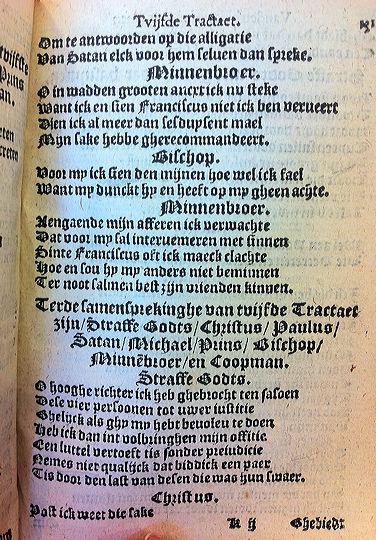 Tvijfde Tractaet.
Om te antwoorden op die alligatie
Van Satan elck voor hem seluen dan spreke.
Minnenbroer.
O in wadden grooten ancxt ick nu steke
Want ick en sien Franciscus niet ick ben verueert
Dien ick al meer dan sesdupsent mael
Mijn sake hebbe gherecommandeert.
Bischop.
Voor mp ick sien den mijnen hoe wel ick fael
Want mp dunckt hp en heeft op mp gheen achte.
Minnenbroer.
Aengaende mijn afferen ick verwachte
Dat voor mp sal interuemeren met sinnen
Sinte Franciscus oft ick maeck clachte
Hoe en sou hp mp anders niet beminnen
Ter noot salmen best zijn vrienden kinnen.
Terde samensprekinghe van tvijfde Tractaet
zijn/Straffe Godts/Christus/Paulus/
Satan/Michael/Prins/Bischop/
Minnēbroer/en Coopman.
Straffe Godts.
O hooghe richter ick heb ghebrocht ten saisoen
Dese vier persoonen tot uwer iustitie
Ghelijck als ghp mp hebt beuolen te doen
Heb ick dan int volbringhen mijn offitie
Een luttel vertoeft tis sonder preiudicie
Nemes niet qualijck dat biddick een paer
Tis door den last van desen die was hun swaer.
Christus.
Post ick weet die sake
Ghebiedt